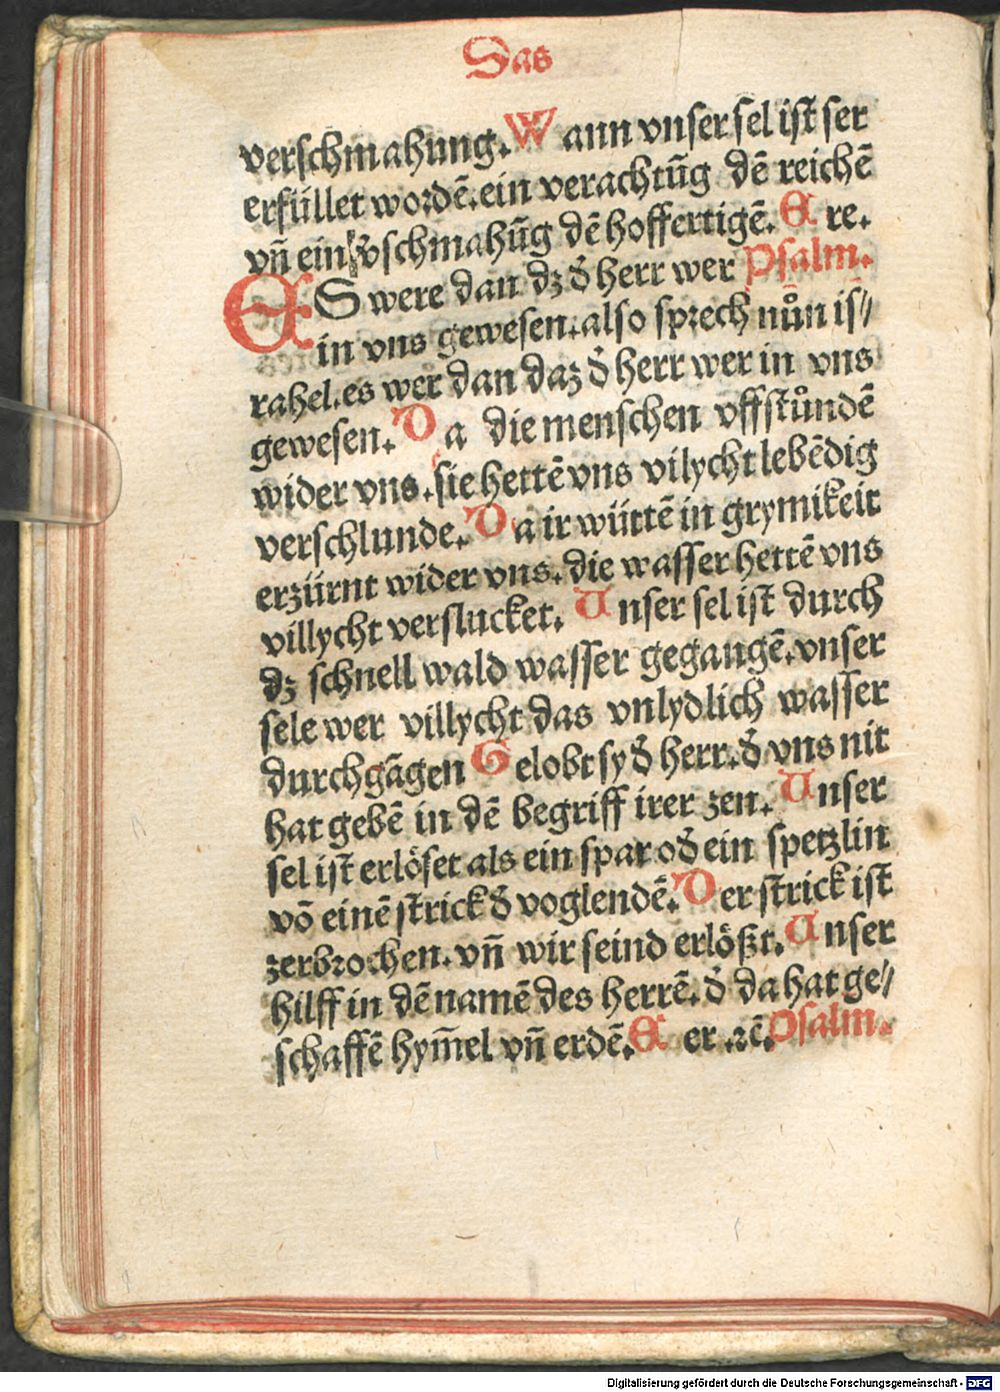 Das
verschmahung. Wann vnser sel ist ser
erfüllet wordē. ein verachtūg dē reichē
vn̄ ein v̄schmahūg dē hoffertigē. Ere.
ES were dan dz d̄ herr wer Psalm.
in vns gewesen. also sprech nůn is//
rahel. es wer dan daz d̄ herr wer in vns
gewesen. Da die menschen vffstůndē
wider vns. sie hettē vns vilycht lebēdig
verschlunde. Da ir wüttē in grymikeit
erzürnt wider vns. die wasser hettē vns
villycht verslucket. Unser sel ist durch
dz schnell wald wasser gegangē. vnser
sele wer villycht das vnlydlich wasser
durchgāgen Gelobt sy d̄ herr. d̄ vns nit
hat gebē in dē begriff irer zen. Unser
sel ist erlöset als ein spar od̄ ein spetzlin
vō einē strick d̄ voglendē. Der strick ist
zerbrochen. vn̄ wir seind erlößt. Unser
hilff in dē namē des herrē. d̄ da hat ge//
schaffē hym̄el vn̄ erdē. Eer .ꝛc̄. Psalm.
Digitalisierung gefördert durch die Deutsche Forschungsgemeinschaft - DFG